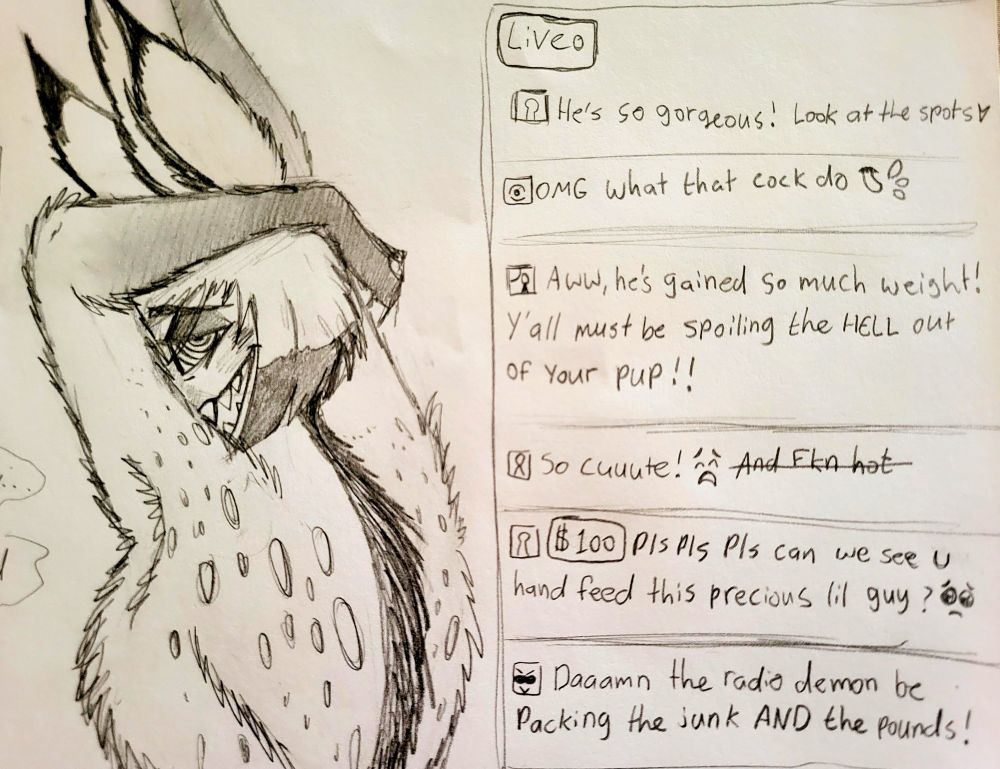 Liveo
He's so gorgeous! Look at the spots
OMG what that cock do
Aww, he's gained so much weight!
Y'all must be spoiling the HELL out
of your pup!!
So cuuute! And Fkn hot
$100 Pls Pls Pls can we see u
hand feed this precious lil guy?
Daaamn the radio demon be
Packing the junk AND the pounds!